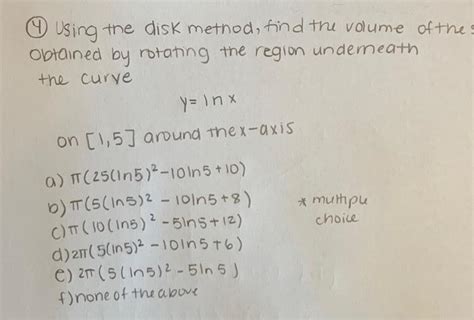 ④ Using the disk method, find the volume of the
obtained by rotating the region underneath
the curve
y = ln x
on [1,5] around the x-axis
a) π(25(ln5)² - 10ln5 + 10)
b) π(5(ln5)² - 10ln5 + 8)
c) π(10(ln5)² - 5ln5 + 12)
d) 2π(5(ln5)² - 10ln5 + 6)
e) 2π(5(ln5)² - 5ln5)
f) none of the above
* multipu
choice